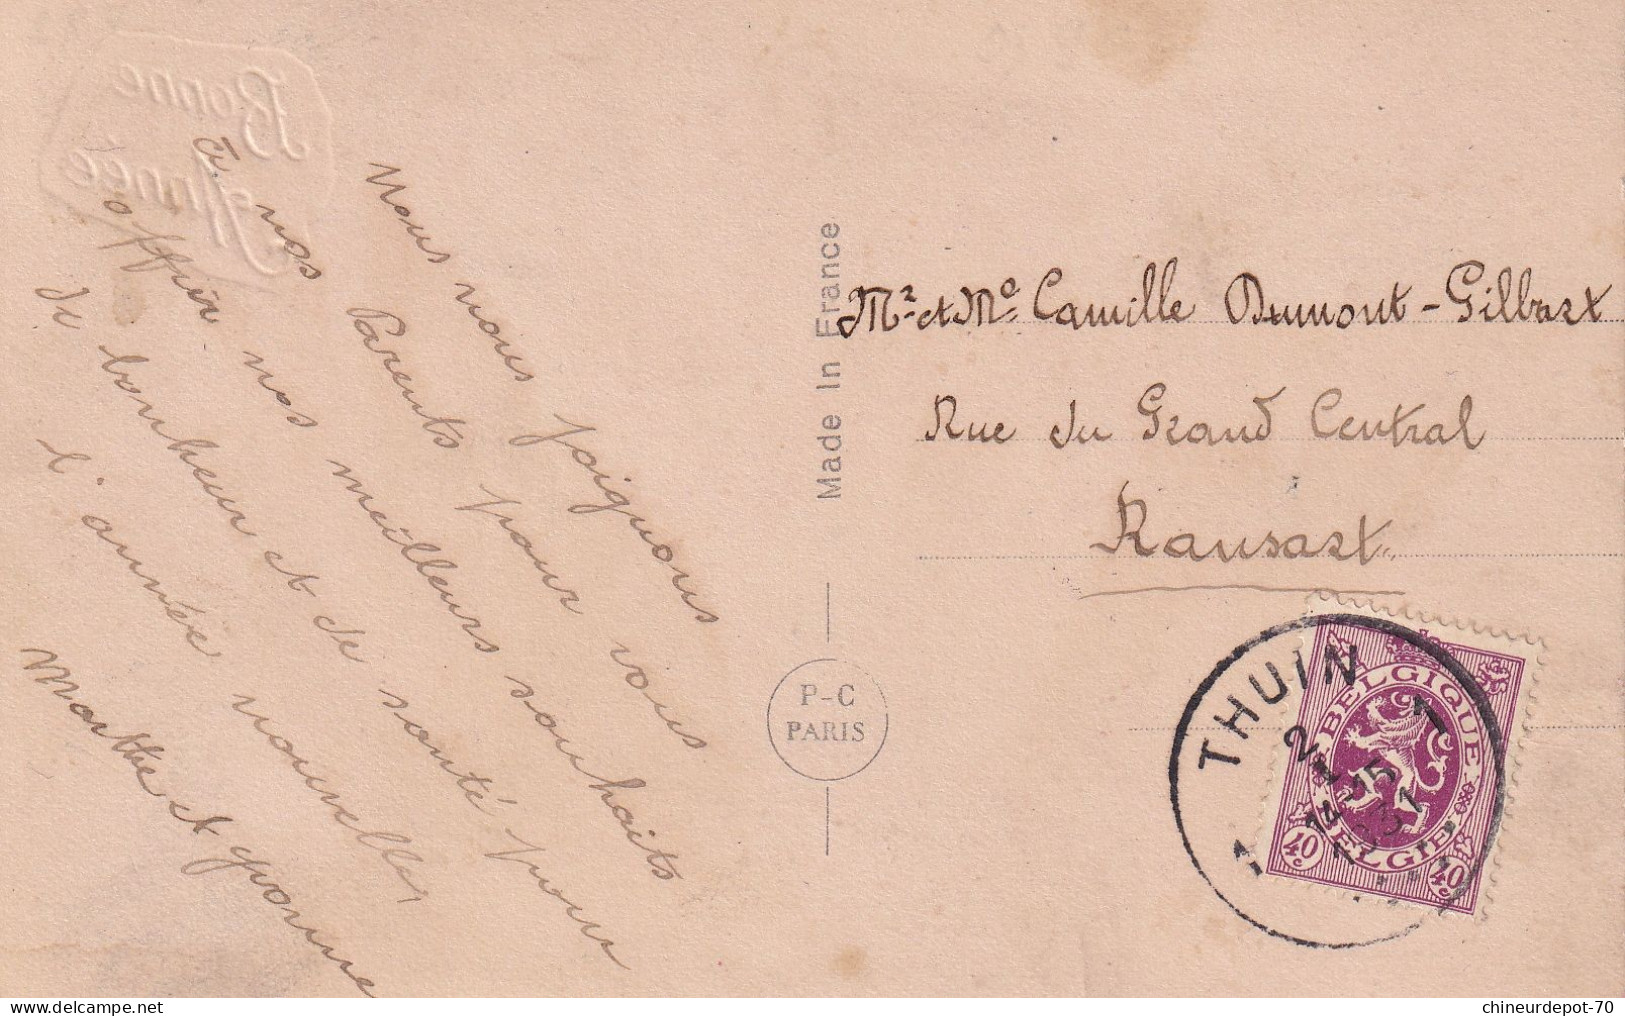 Bonne
Année
Nous nous joignons
à nos Parents pour vous
offrir nos meilleurs souhaits
de bonheur et de santé pour
l'année nouvelle
Marthe et Yvonne
Made In France
P-C
PARIS
Mr et Me Camille Dumont-Gilbart
Rue du Grand Central
Ransart
THUIN
1
1
2 I
14-15
31
BELGIQUE
BELGIE
40c
40c
chineurdepot-70